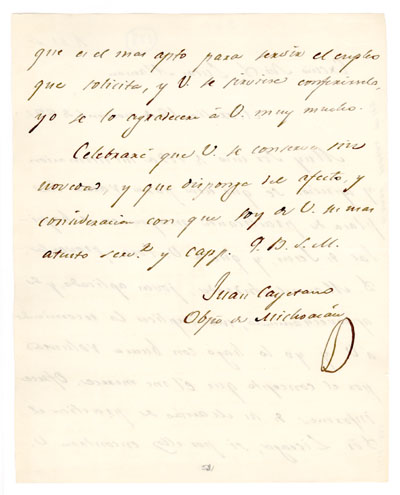 que es el mas apto para servir el empleo
que solicita, y V. se sirviere conferirselo,
yo se lo agradeceré á V. muy mucho.
Celebraré que V. se conserve sin
novedad, y que disponga del afecto, y
consideracion con que soy de V. su mas
atento serv.r y capp. Q. B. S. M.
Juan Cayetano
Obpo de Michoacán